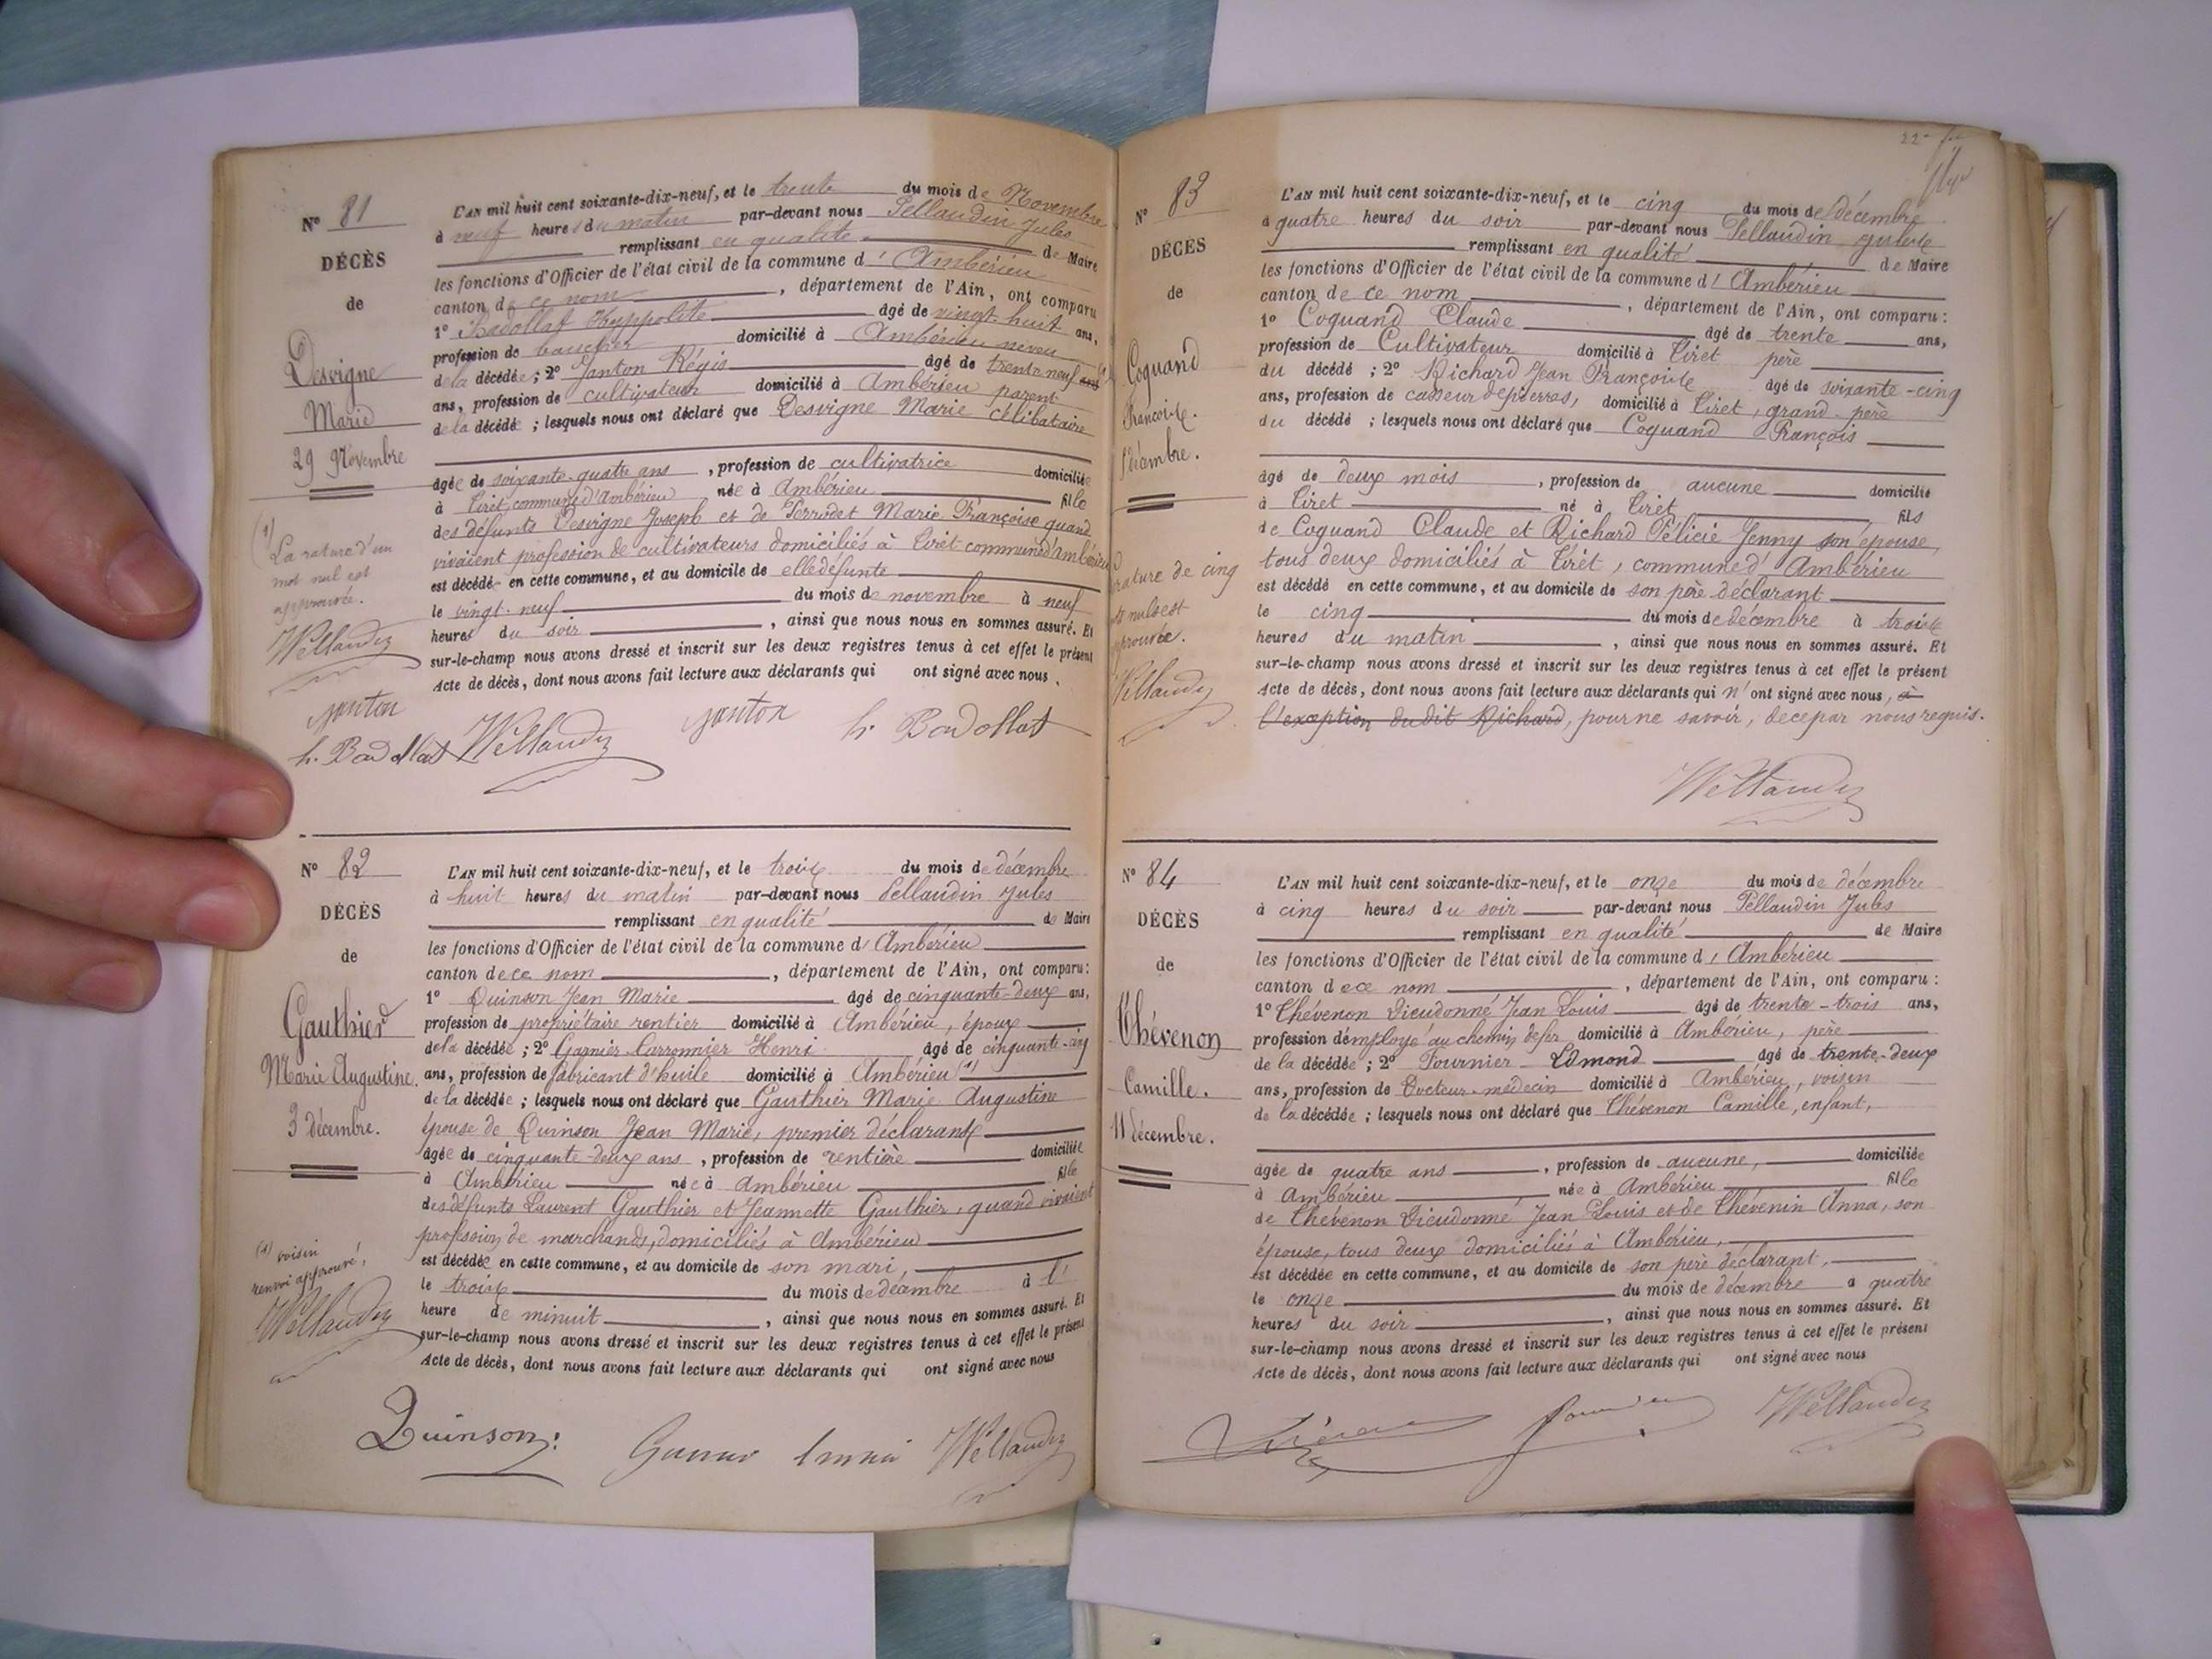 N° 81
DÉCÈS
de
Desvigne
Marie
29 Novembre
(1)
La rature d'un
mot nul est
approuvée.
L'AN mil huit cent soixante-dix-neuf, et le trente du mois de Novembre
à neuf heures du matin par-devant nous Pellaudin Jules
remplissant en qualité de Maire
les fonctions d'Officier de l'état civil de la commune d'Ambérieu
canton de ce nom, département de l'Ain, ont comparu
1° Badollat Hyppolite âgé de vingt-huit ans,
profession de domicilié à Ambérieu neveu
de la décédée ; 2° Janton Régis âgé de trente neuf ans (1)
ans, profession de cultivateur domicilié à Ambérieu parent
de la décédée ; lesquels nous ont déclaré que Desvigne Marie célibataire
âgée de soixante-quatre ans, profession de cultivatrice domiciliée
à Tiret commune d'Ambérieu née à Ambérieu fille
des défunts Desvigne Joseph et de Perrodet Marie Françoise quand
vivaient profession de cultivateurs domiciliés à Tiret commune d'Ambérieu
est décédé en cette commune, et au domicile de elle défunte
le vingt-neuf du mois de novembre à neuf
heures du soir, ainsi que nous nous en sommes assuré. Et
sur-le-champ nous avons dressé et inscrit sur les deux registres tenus à cet effet le présent
Acte de décès, dont nous avons fait lecture aux déclarants qui ont signé avec nous.
Janton
Janton
h. Badollat
h. Badollat
N° 82
DÉCÈS
de
Gauthier
Marie Augustine.
3 décembre.
(1) voisin
renvoi approuvé,
L'AN mil huit cent soixante-dix-neuf, et le trois du mois de décembre
à huit heures du matin par-devant nous Pellaudin Jules
remplissant en qualité de Maire
les fonctions d'Officier de l'état civil de la commune d'Ambérieu
canton de ce nom, département de l'Ain, ont comparu :
1° Quinson Jean Marie âgé de cinquante-deux ans,
profession de propriétaire rentier domicilié à Ambérieu, époux
de la décédée ; 2° Garnier-Carronnier Henri âgé de cinquante-cinq
ans, profession de fabricant d'huile domicilié à Ambérieu (1)
de la décédée ; lesquels nous ont déclaré que Gauthier Marie Augustine
épouse de Quinson Jean Marie, premier déclarant
âgée de cinquante-deux ans, profession de rentière domiciliée
à Ambérieu née à Ambérieu fille
des défunts Laurent Gauthier et Jeannette Gauthier, quand vivaient
profession de marchands, domiciliés à Ambérieu
est décédée en cette commune, et au domicile de son mari,
le trois du mois de décembre à l'
heure de minuit, ainsi que nous nous en sommes assuré. Et
sur-le-champ nous avons dressé et inscrit sur les deux registres tenus à cet effet le présent
Acte de décès, dont nous avons fait lecture aux déclarants qui ont signé avec nous
Quinson
N° 83
DÉCÈS
de
Coquand
5 décembre.
rature de cinq
nuls est
L'AN mil huit cent soixante-dix-neuf, et le cinq du mois de décembre
à quatre heures du soir par-devant nous Pellaudin Jules
remplissant en qualité de Maire
les fonctions d'Officier de l'état civil de la commune d'Ambérieu
canton de ce nom, département de l'Ain, ont comparu :
1° Coquand Claude âgé de trente ans,
profession de Cultivateur domicilié à Tiret père
du décédé ; 2° Richard Jean François âgé de soixante-cinq
ans, profession de casseur de pierres, domicilié à Tiret, grand-père
du décédé ; lesquels nous ont déclaré que Coquand François
âgé de deux mois, profession de aucune domicilié
à Tiret né à Tiret fils
de Coquand Claude et Richard Félicie Jenny son épouse,
tous deux domiciliés à Tiret, commune d'Ambérieu
est décédé en cette commune, et au domicile de son père déclarant
le cinq du mois de décembre à trois
heures du matin, ainsi que nous nous en sommes assuré. Et
sur-le-champ nous avons dressé et inscrit sur les deux registres tenus à cet effet le présent
Acte de décès, dont nous avons fait lecture aux déclarants qui n'ont signé avec nous, à
l'exception dudit Richard, pour ne savoir, de ce par nous requis.
N° 84
DÉCÈS
de
Thévenon
Camille.
11 décembre.
L'AN mil huit cent soixante-dix-neuf, et le onze du mois de décembre
à cinq heures du soir par-devant nous Pellaudin Jules
remplissant en qualité de Maire
les fonctions d'Officier de l'état civil de la commune d'Ambérieu
canton de ce nom, département de l'Ain, ont comparu :
1° Thévenon Dieudonné Jean Louis âgé de trente-trois ans,
profession d'employé au chemin de fer domicilié à Ambérieu, père
de la décédée ; 2° Fournier Edmond âgé de trente-deux
ans, profession de Docteur-médecin domicilié à Ambérieu, voisin
de la décédée ; lesquels nous ont déclaré que Thévenon Camille, enfant,
âgée de quatre ans, profession de aucune, domiciliée
à Ambérieu née à Ambérieu fille
de Thévenon Dieudonné Jean Louis et de Thévenin Anna, son
épouse, tous deux domiciliés à Ambérieu,
est décédée en cette commune, et au domicile de son père déclarant,
le onze du mois de décembre à quatre
heures du soir, ainsi que nous nous en sommes assuré. Et
sur-le-champ nous avons dressé et inscrit sur les deux registres tenus à cet effet le présent
Acte de décès, dont nous avons fait lecture aux déclarants qui ont signé avec nous